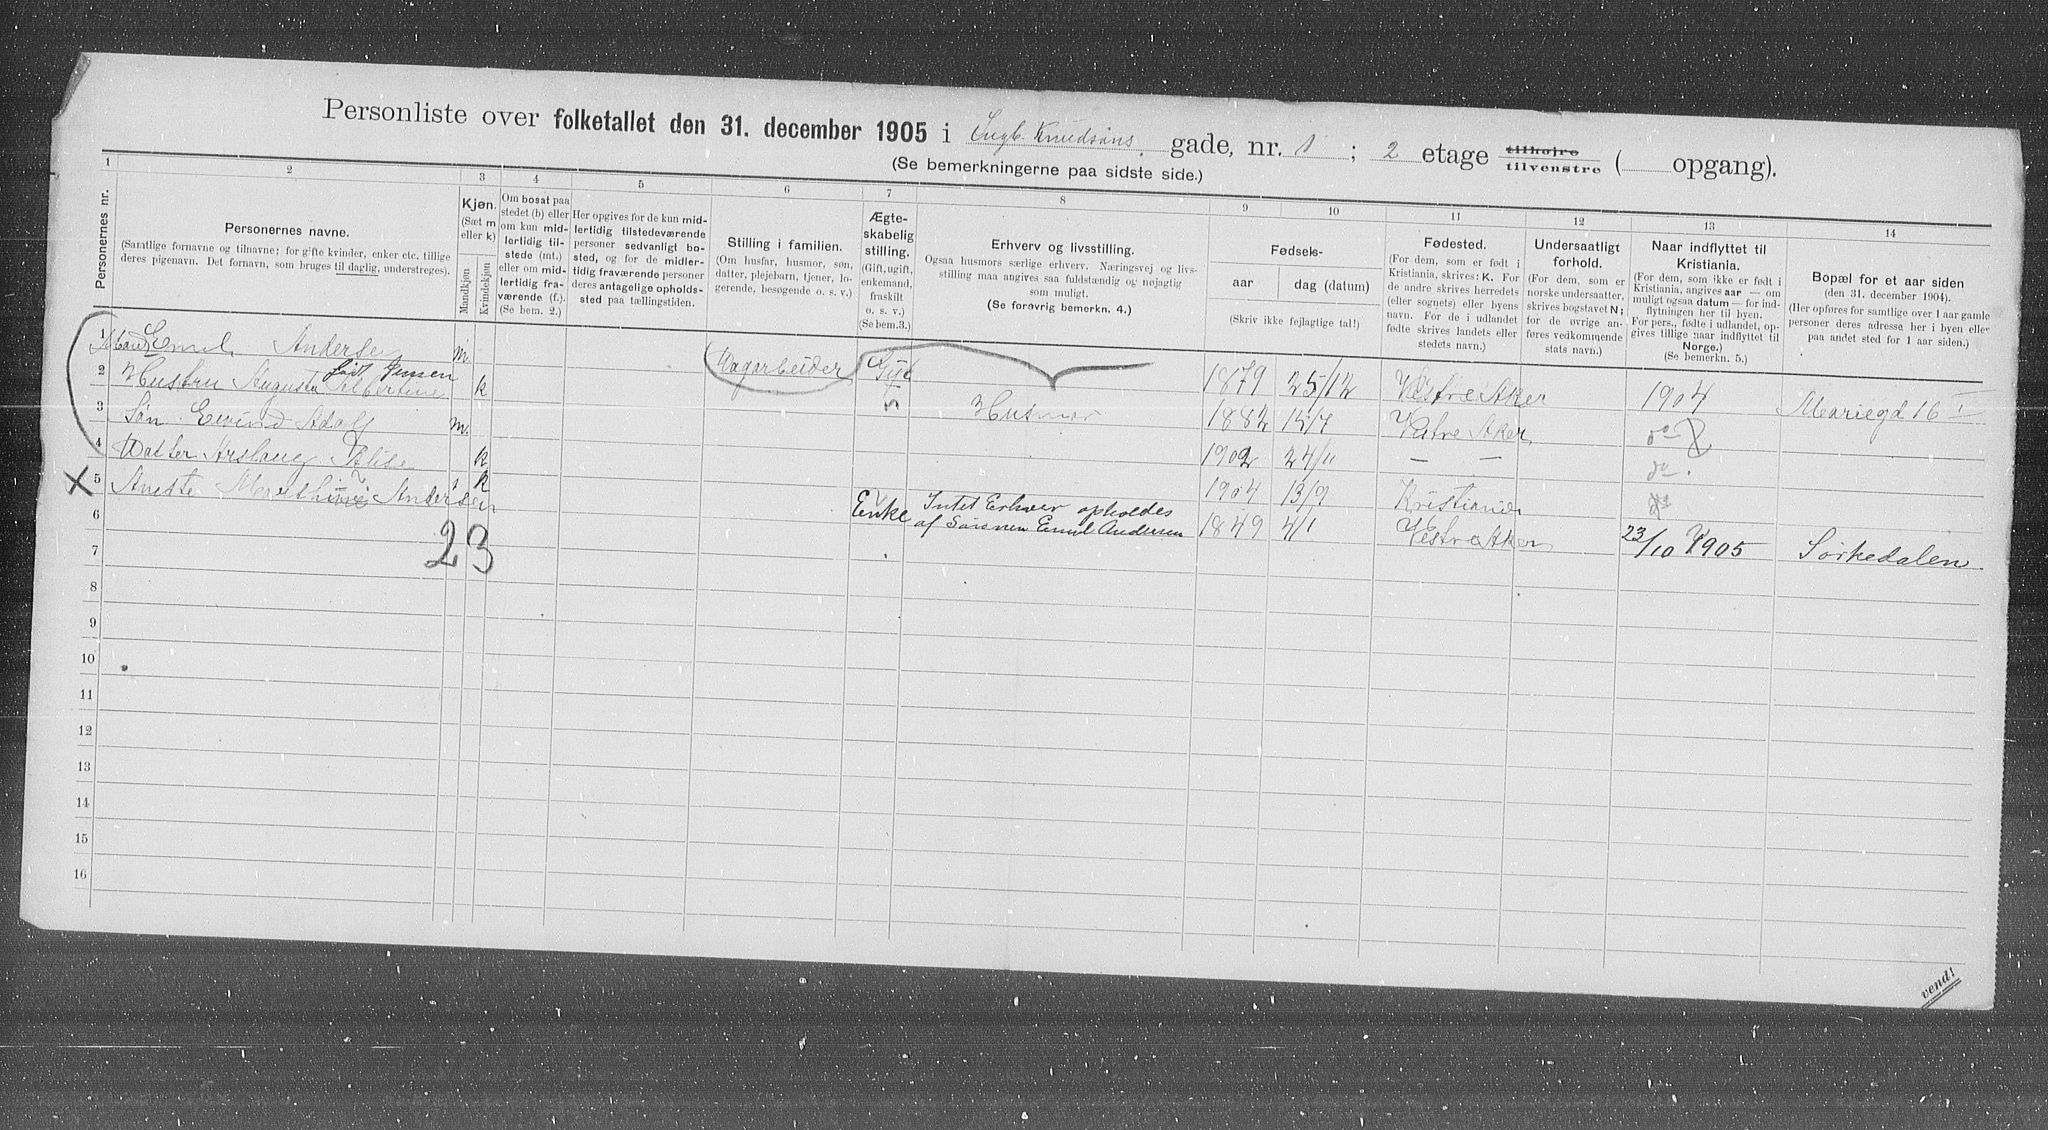 Personliste over folketallet den 31. december 1905 i Ingb. Knudsøns gade, nr. 1 ; 2 etage tilhøjre tilvenstre ( opgang).
(Se bemerkningerne paa sidste side.)
1 2 3 4 5 6 7 8 9 10 11 12 13 14
Personernes nr.
Personernes navne.
(Samtlige fornavne og tilnavne; for gifte kvinder, enker etc. tillige
deres pigenavn. Det fornavn, som bruges til daglig, understreges).
Kjøn.
(Sæt m
eller k)
Mandkjøn
Kvindekjøn
Om bosat paa
stedet (b) eller
om kun mid-
lertidig til-
stede (mt.)
eller om mid-
lertidig fra-
værende (f.).
(Se bem. 2.)
Her opgives for de kun mid-
lertidig tilstedeværende
personer sedvanligt bo-
sted, og for de midler-
tidig fraværende personer
deres antagelige opholds-
sted paa tællingstiden.
Stilling i familien.
(Om husfar, husmor, søn,
datter, plejebarn, tjener, lo-
gerende, besøgende o. s. v.)
Ægte-
skabelig
stilling.
(Gift, ugift,
enkemand,
fraskilt
o. s. v.)
(Se bem.3.)
Erhverv og livsstilling.
Ogsaa husmors særlige erhverv. Næringsvej og livs-
stilling maa angives saa fuldstændig og nøjagtig
som muligt.
(Se forøvrig bemerkn. 4.)
Fødsels-
aar
dag (datum)
(Skriv ikke fejlagtige tal!)
Fødested.
(For dem, som er født i
Kristiania, skrives: K. For
de andre skrives herredets
(eller sognets) eller byens
navn. For de i udlandet
fødte skrives landets eller
stedets navn.)
Undersaatligt
forhold.
(For dem, som er
norske undersaatter,
skrives bogstavet N;
for de øvrige an-
føres vedkommende
stats navn.)
Naar indflyttet til
Kristiania.
(For dem, som ikke er født i
Kristiania, angives aar — om
muligt ogsaa datum — for ind-
flytningen her til byen.
For pers., fødte i udlandet, op-
gives tillige naar indflyttet til
Norge.)
(Se bemerkn. 5.)
Bopæl for et aar siden
(den 31. december 1904).
(Her opføres for samtlige over 1 aar gamle
personer deres adresse her i byen eller
paa andet sted for 1 aar siden.)
1 Emil Andersen m. Dagarbeider Gift 1879 25/12 Vestre Aker 1904 Mariegd 16 I
født Jensen
2 Hustru Augusta Albertine k Husmor 1882 Vestre Aker do
3 Søn Eivind Adolf m. 1902 24/11 — — do.
4 Datter Aslaug Alise k 1904 13/9 Kristiania do
5 Andersen k Enke Intet Erhver opholdes
af Sønnen Emil Andersen 1849 4/1 Vestre Aker 23/10 1905 Sørkedalen
6
23
7
8
9
10
11
12
13
14
15
16
vend!